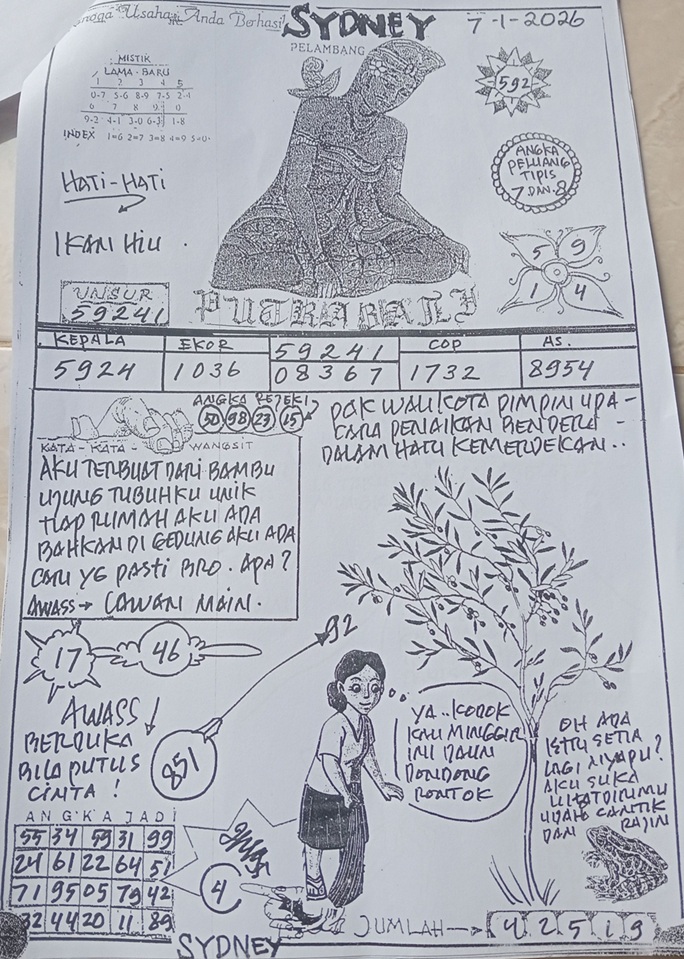 Usaha Anda Berhasil
SYDNEY
7-1-2026
PELAMBANG
MISTIK
LAMA - BARU
1 2 3 4 5
0-7 5-6 8-9 7-5 2-4
6 7 8 9 0
9-2 4-1 3-0 6-3 1-8
INDEX 1=6 2=7 3=8 4=9 5=0
592
ANGKA
PELUANG
TIPIS
7 DAN 8
HATI-HATI
IKAN HIU
5 9
1 4
UNSUR
59241
PUTRA BALI
KEPALA EKOR 59241 COP AS.
5924 1036 08367 1732 8954
ANGKA REJEKI
50 98 23 15
KATA - KATA - WANGSIT
PAK WALIKOTA PIMPIN UPA-
CARA PENAIKAN BENDERA -
DALAM HARI KEMERDEKAN..
AKU TERBUAT DARI BAMBU
UJUNG TUBUHKU UNIK
TIAP RUMAH AKU ADA
BAHKAN DI GEDUNG AKU ADA
CARI YG PASTI BRO. APA?
AWASS → LAWAN MAIN.
17 46
92
AWASS!
BERDUKA
BILA PUTUS
CINTA!
851
YA.. KODOK
KAU MINGGIR
INI DAUN
DONDONG
RONTOK
OH ADA
ISTRI SETIA
LAGI NYAPU?
AKU SUKA
LIHAT DIRIMU
UDAH CANTIK
DAN RAJIN
ANGKA JADI
55 34 59 31 99
24 61 22 64 51
71 95 05 79 42
32 44 20 11 89
4
JUMLAH → 4 2 5 1 9
SYDNEY